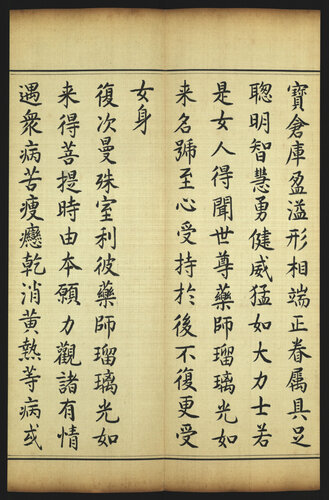 寶倉庫盈溢形相端正眷屬具足
聰明智慧勇健威猛如大力士若
是女人得聞世尊藥師瑠璃光如
来名號至心受持於後不復更受
女身
復次曼殊室利彼藥師瑠璃光如
来得菩提時由本願力觀諸有情
遇衆病苦瘦癴乾消黄熱等病或